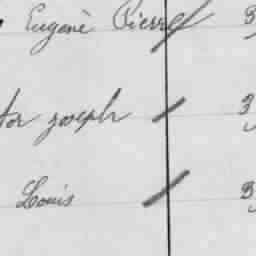 Eugène Pierre 3
tor joseph 3
Louis 3